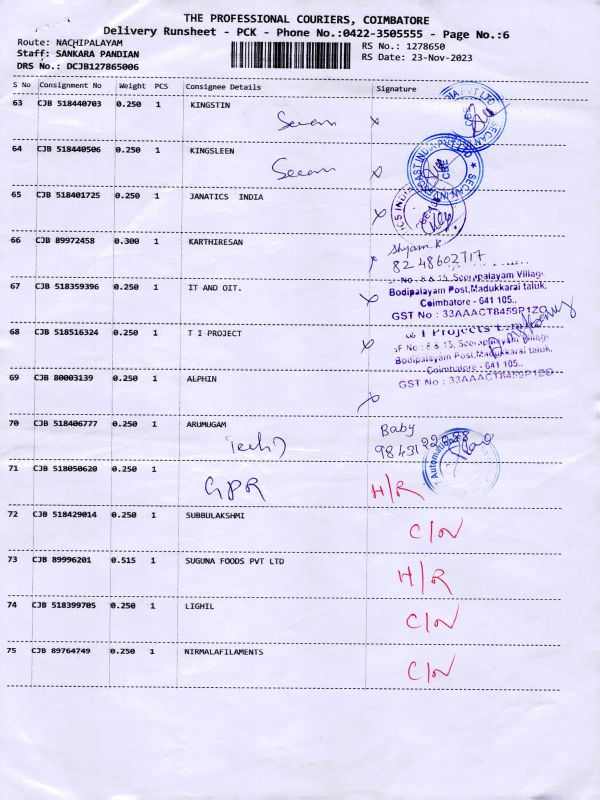 THE PROFESSIONAL COURIERS, COIMBATORE
Delivery Runsheet - PCK - Phone No.:0422-3505555 - Page No.:6
Route: NACHIPALAYAM
RS No.: 1278650
Staff: SANKARA PANDIAN
RS Date: 23-Nov-2023
DRS No.: DCJB127865006
S No Consignment No Weight PCS Consignee Details Signature
63 CJB 518440703 0.250 1 KINGSTIN
64 CJB 518440506 0.250 1 KINGSLEEN
65 CJB 518401725 0.250 1 JANATICS INDIA
66 CJB 89972458 0.300 1 KARTHIRESAN
Shyam.K
82 48602717
67 CJB 518359396 0.250 1 IT AND OIT.
SF No : 8 & 15, Seerapalayam Village
Bodipalayam Post,Madukkarai taluk,
Coimbatore - 641 105..
GST No : 33AAACT8459R1ZO
68 CJB 518516324 0.250 1 T I PROJECT
SF No : 8 & 15, Seerapalayam Village
Bodipalayam Post,Madukkarai taluk,
Coimbatore - 641 105..
GST No : 33AAACT8459R1ZO
69 CJB 80003139 0.250 1 ALPHIN
70 CJB 518406777 0.250 1 ARUMUGAM
Baby
71 CJB 518050620 0.250 1 GPR H/R
72 CJB 518429014 0.250 1 SUBBULAKSHMI C/N
73 CJB 89996201 0.515 1 SUGUNA FOODS PVT LTD H/R
74 CJB 518399705 0.250 1 LIGHIL C/N
75 CJB 89764749 0.250 1 NIRMALAFILAMENTS C/N